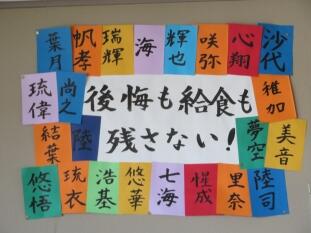 葉月 帆孝 瑞輝 海 輝也 咲弥 心翔 沙代
琉偉 尚之 稚加
後悔も給食も
残さない!
結葉 陸 夢空 美音
悠悟 琉衣 浩基 悠華 七海 惺成 里奈 陸司